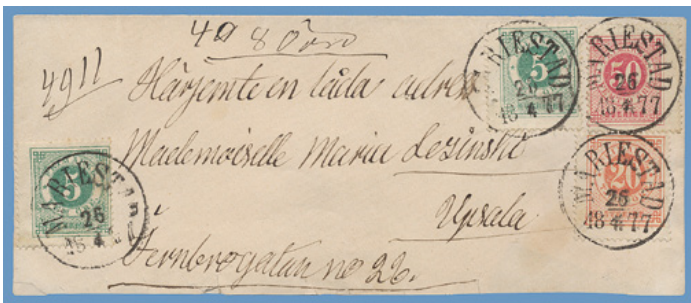 49 8 Öre
4911
Härjemte en låda adress
Mademoiselle Maria Lesinski
Upsala
Jernbrogatan no 22.
5
MARIESTAD
26
18 4 77
50
MARIESTAD
26
18 4 77
20
MARIESTAD
26
18 4 77
5
MARIESTAD
26
18 4